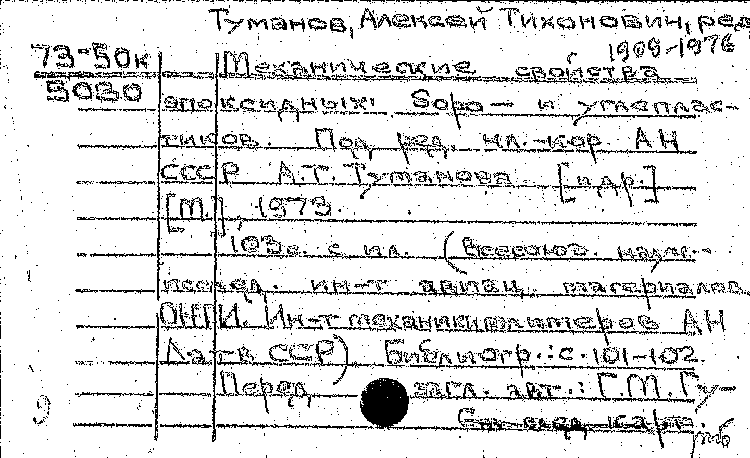 Туманов, Алексей Тихонович, ред
1909-1976
73-50к
5030
Механические свойства
эпоксидных боро- и углеплас-
тиков. Под ред. чл.-кор. АН
СССР А.Т. Туманова [и др.]
[М.], 1973.
103 с. с ил. (Всесоюз. науч.-
исслед. ин-т авиац. материалов.
ОНТИ. Ин-т механики полимеров АН
Латв ССР) Библиогр.: с. 101-102.
Перед загл. авт.: Г.М. Гу-
См. след. карт.